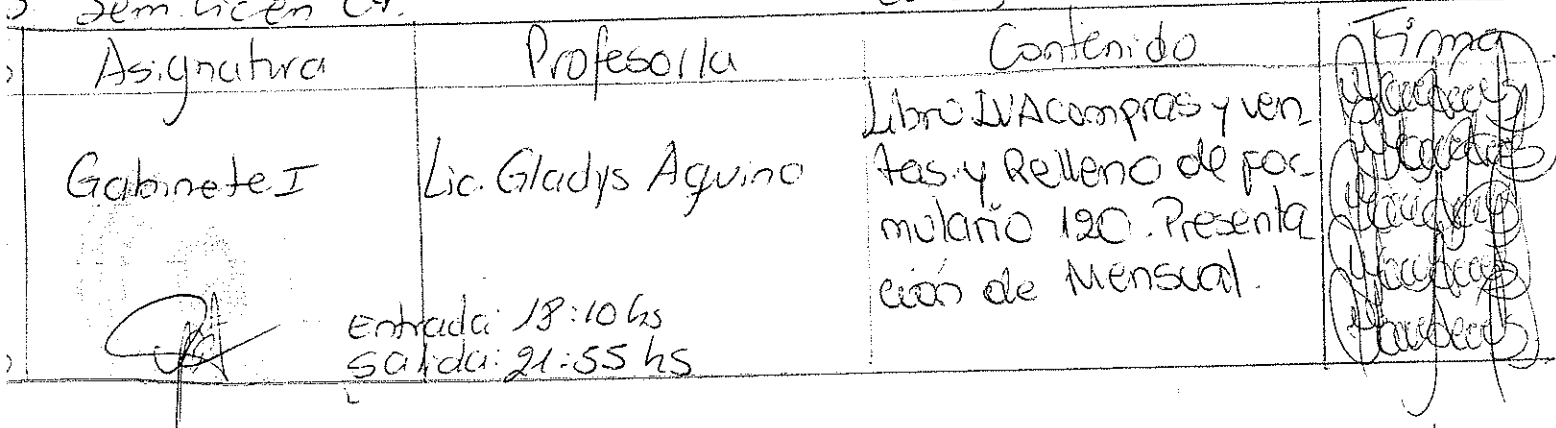 Sem. Licen
Asignatura Profesor/la Contenido Firma
Gabinete I Lic. Gladys Aquino Libro IVA compras y ven
tas y Relleno de for-
mulario 120. Presenta
ción de Mensual.
Entrada: 18:10 hs
Salida: 21:55 hs